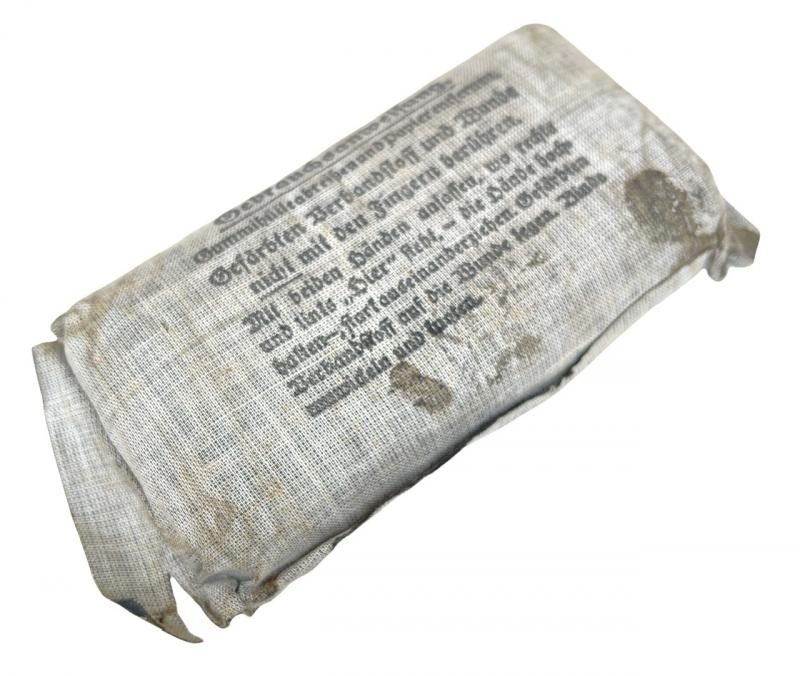 Gebrauchsanweisung.
Gummihülle abreißen und Papier entfernen.
Gefärbten Verbandstoff und Wunde
nicht mit den Fingern berühren.
Mit beiden Händen anfassen, wo rechts
und links „Hier“ steht, – die Hände hoch-
halten – straff auseinanderziehen. Gefärbten
Verbandstoff auf die Wunde legen. Binde
umwickeln und knoten.